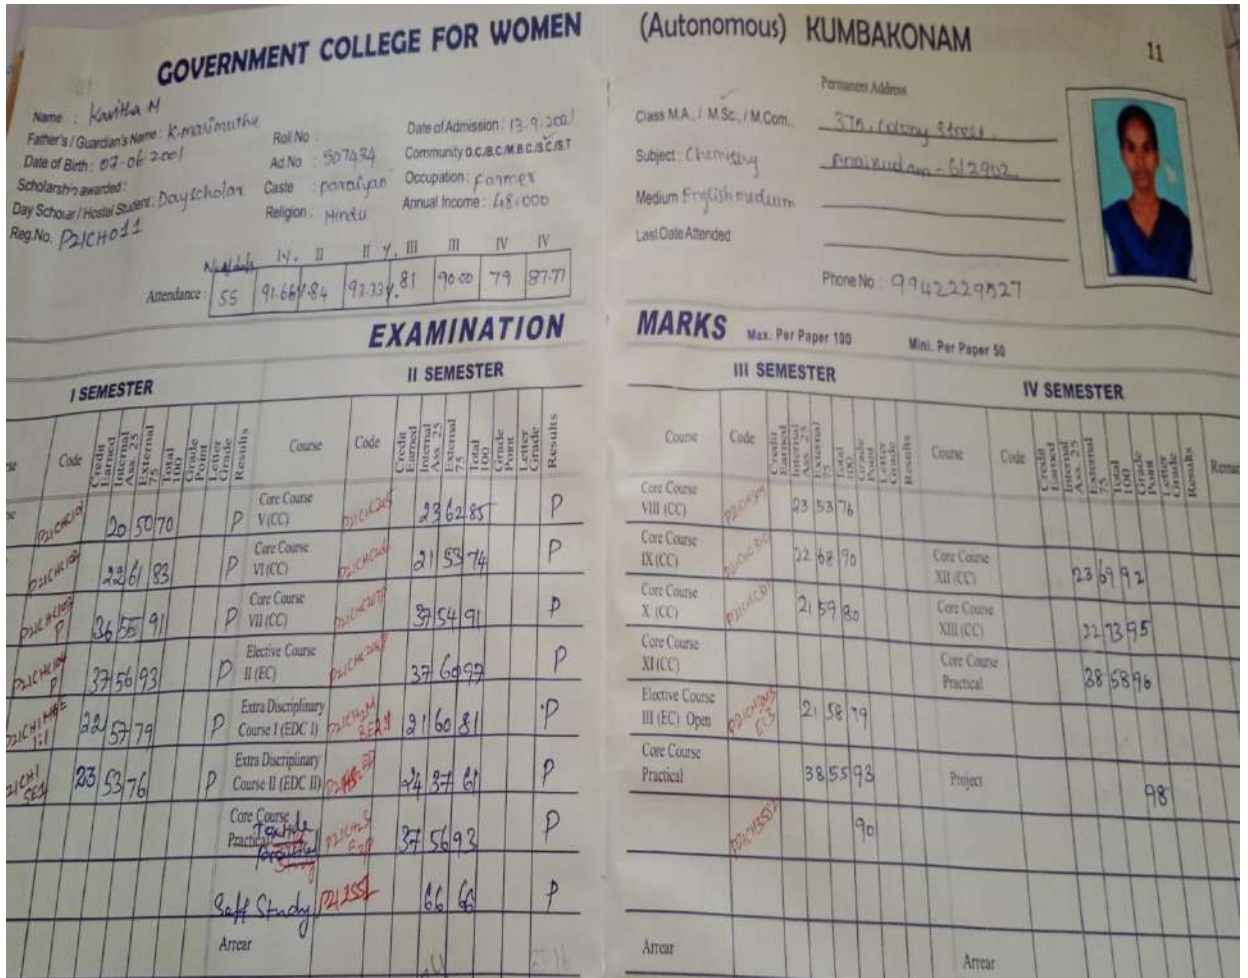 GOVERNMENT COLLEGE FOR WOMEN (Autonomous) KUMBAKONAM
11
Name : Kavitha M
Father's / Guardian's Name : K. marimuthu
Date of Birth : 07-06-2001
Scholarship awarded :
Day Scholar / Hostel Student : Day scholar
Reg.No. P21CH011
Roll No :
Ad.No : 507434
Caste : paraiyan
Religion : Hindu
Date of Admission : 13.9.2021
Community O.C./B.C./M.B.C./S.C./S.T
Occupation : Farmer
Annual Income : 48,000
I y. II II y. III III IV IV
Attendance : 55 91.66%. 84 92.33%. 81 90.00 79 87.77
Permanent Address
Class M.A., / M.Sc., / M.Com.,
375, Colony Street,
Subject : Chemistry
612902
Medium English medium
Last Date Attended
Phone No : 9942229527
EXAMINATION MARKS Max. Per Paper 100 Mini. Per Paper 50
I SEMESTER
Code Credit Earned Internal Ass. 25 External 75 Total 100 Grade Point Letter Grade Results
20 50 70 P
22 61 83 P
P21CHC103 P 36 55 91 P
P21CHC104 P 37 56 93 P
22 57 79 P
P21CH1 SE1 23 53 76 P
II SEMESTER
Course Code Credit Earned Internal Ass. 25 External 75 Total 100 Grade Point Letter Grade Results
Core Course V (CC) P21CHC205 23 62 85 P
Core Course VI (CC) P21CHC206 21 53 74 P
Core Course VII (CC) 37 54 91 P
Elective Course II (EC) 37 60 97 P
Extra Discriplinary Course I (EDC I) 21 60 81 P
Extra Discriplinary Course II (EDC II) 24 37 61 P
Core Course Practical 37 56 93 P
Self Study P212SS1 66 66 P
Arrear
III SEMESTER
Course Code Credit Earned Internal Ass. 25 External 75 Total 100 Grade Point Letter Grade Results
Core Course VIII (CC) 23 53 76
Core Course IX (CC) 22 68 90
Core Course X (CC) 21 59 80
Core Course XI (CC)
Elective Course III (EC) Open 21 58 79
Core Course Practical 38 55 93
P21CH3SS2 90
Arrear
IV SEMESTER
Course Code Credit Earned Internal Ass. 25 External 75 Total 100 Grade Point Letter Grade Results
Core Course XII (CC) 23 69 92
Core Course XIII (CC) 22 73 95
Core Course Practical 38 58 96
Project 98
Arrear